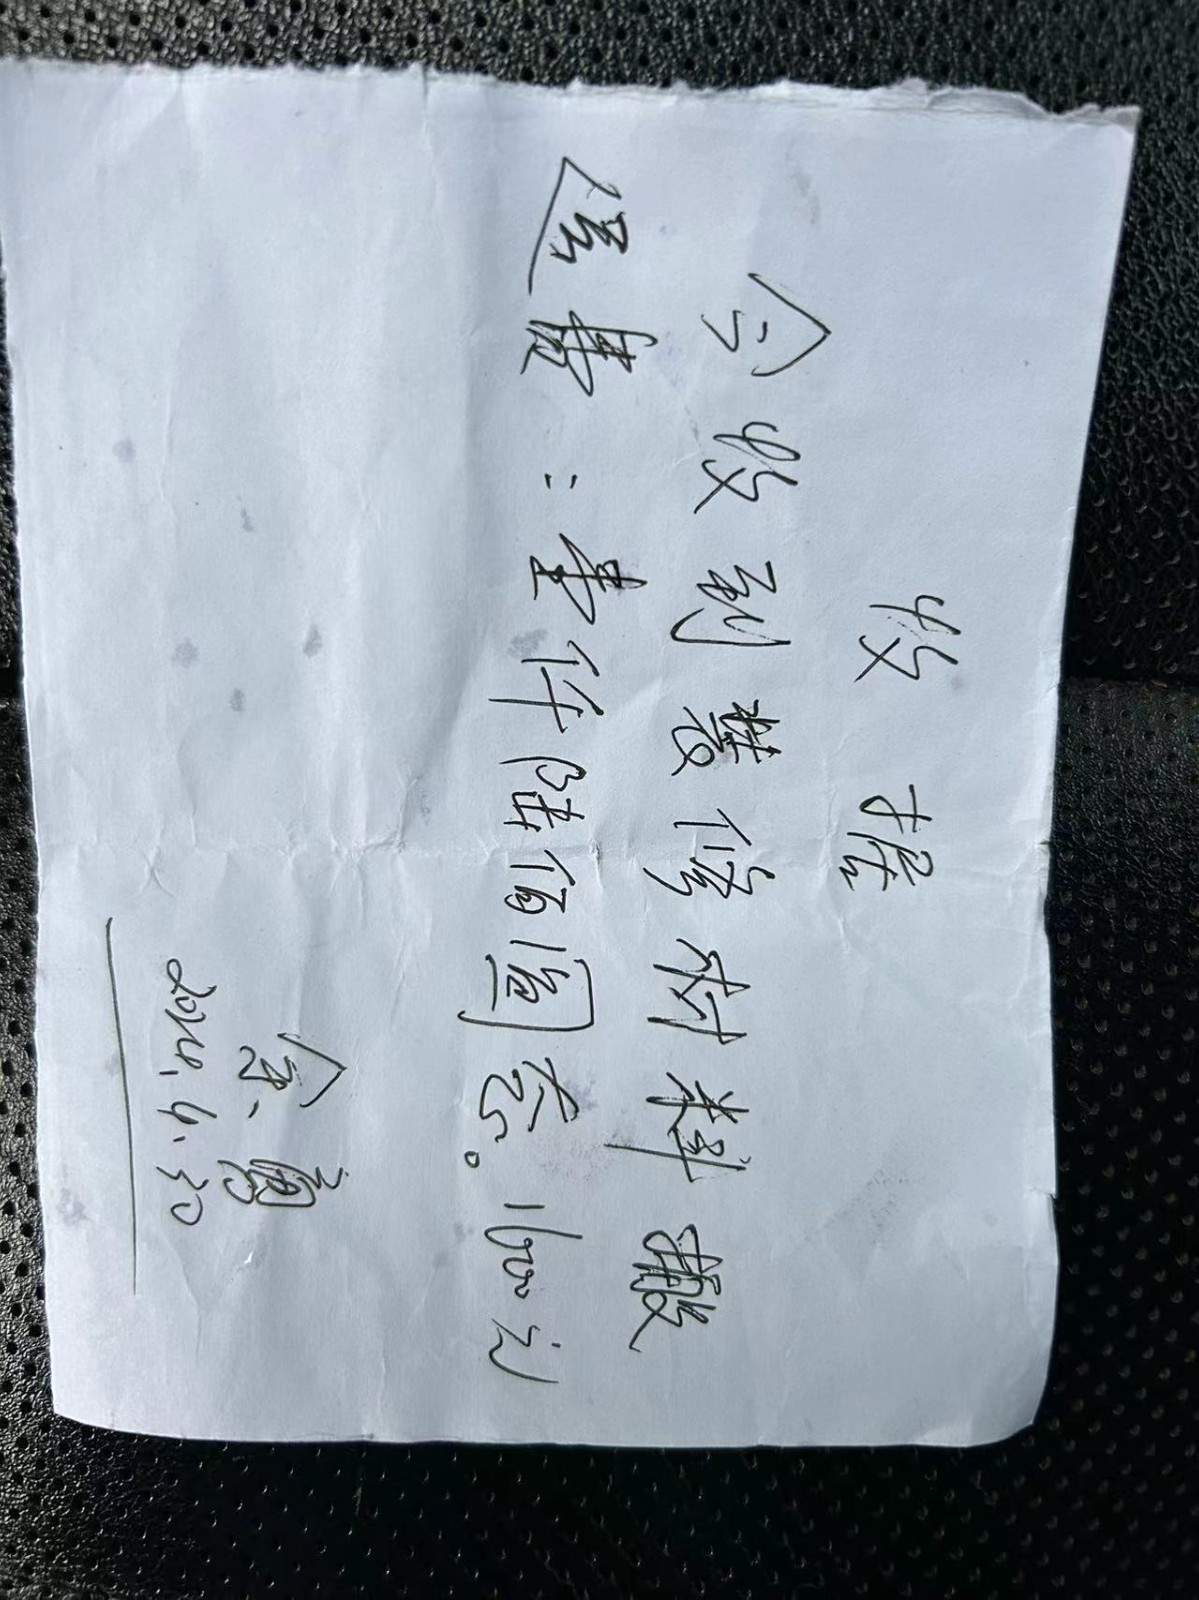 收据
今收到装修材料搬
运费：壹仟陆佰圆。1600元
余
2024.4.30